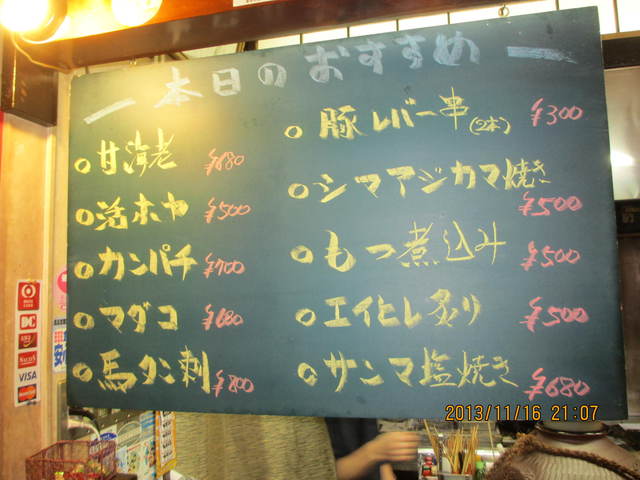 本日のおすすめ
○甘海老 ¥680
○活ホヤ ¥500
○カンパチ ¥700
○マダコ ¥680
○馬タン刺 ¥800
○豚レバー串(2本) ¥300
○シマアジカマ焼き
¥500
○もつ煮込み ¥500
○エイヒレ炙り ¥500
○サンマ塩焼き ¥680
DC
VISA
2013/11/16 21:07